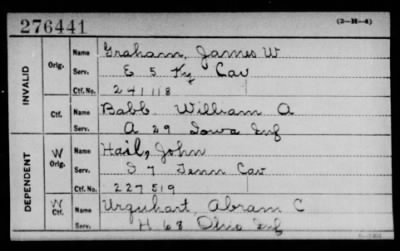 276441
(3-M-4)
INVALID
Orig.
Name Graham, James W
Serv. E 5 Ky Cav
Ctf. No. 241118
Ctf.
Name Babb William A
Serv. A 29 Iowa Inf
DEPENDENT
W Orig.
Name Hail, John
Serv. 7 Tenn Cav
Ctf. No. 227519
W Ctf.
Name Urquhart, Abram C
Serv. H 68 Ohio Inf